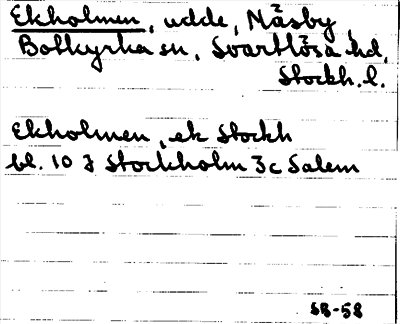 Ekholmen, udde, Näsby,
Botkyrka sn, Svartlösa hd,
Stockh. l.
Ekholmen, ek Stockh
bl. 10 J Stockholm 3c Salem
SB-58